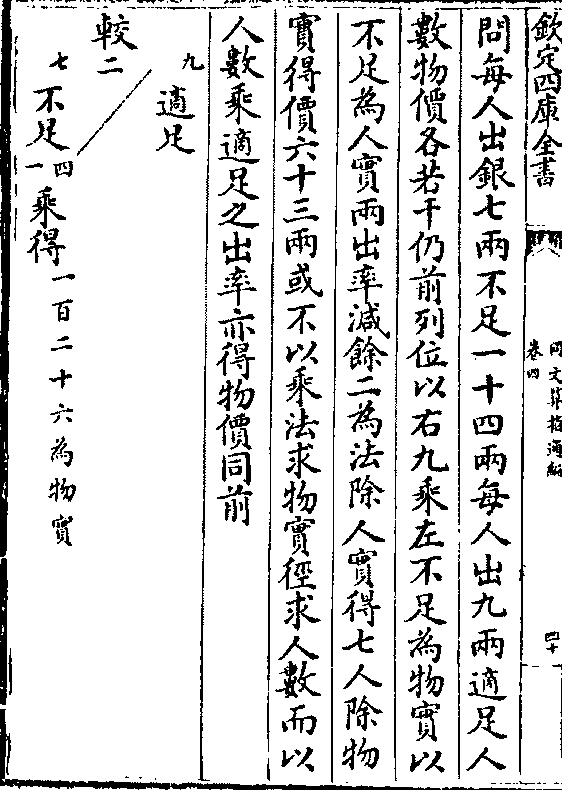 欽定四庫全書
卷四
四十
問每人出銀七兩不足一十四兩每人出九兩適足人
數物價各若干仍前列位以右九乘左不足為物實以
不足為人實兩出率減餘二為法除人實得七人除物
實得價六十三兩或不以乘法求物實徑求人數而以
人數乘適足之出率亦得物價同前
九適足
較二
七不足一四乘得一百二十六為物實